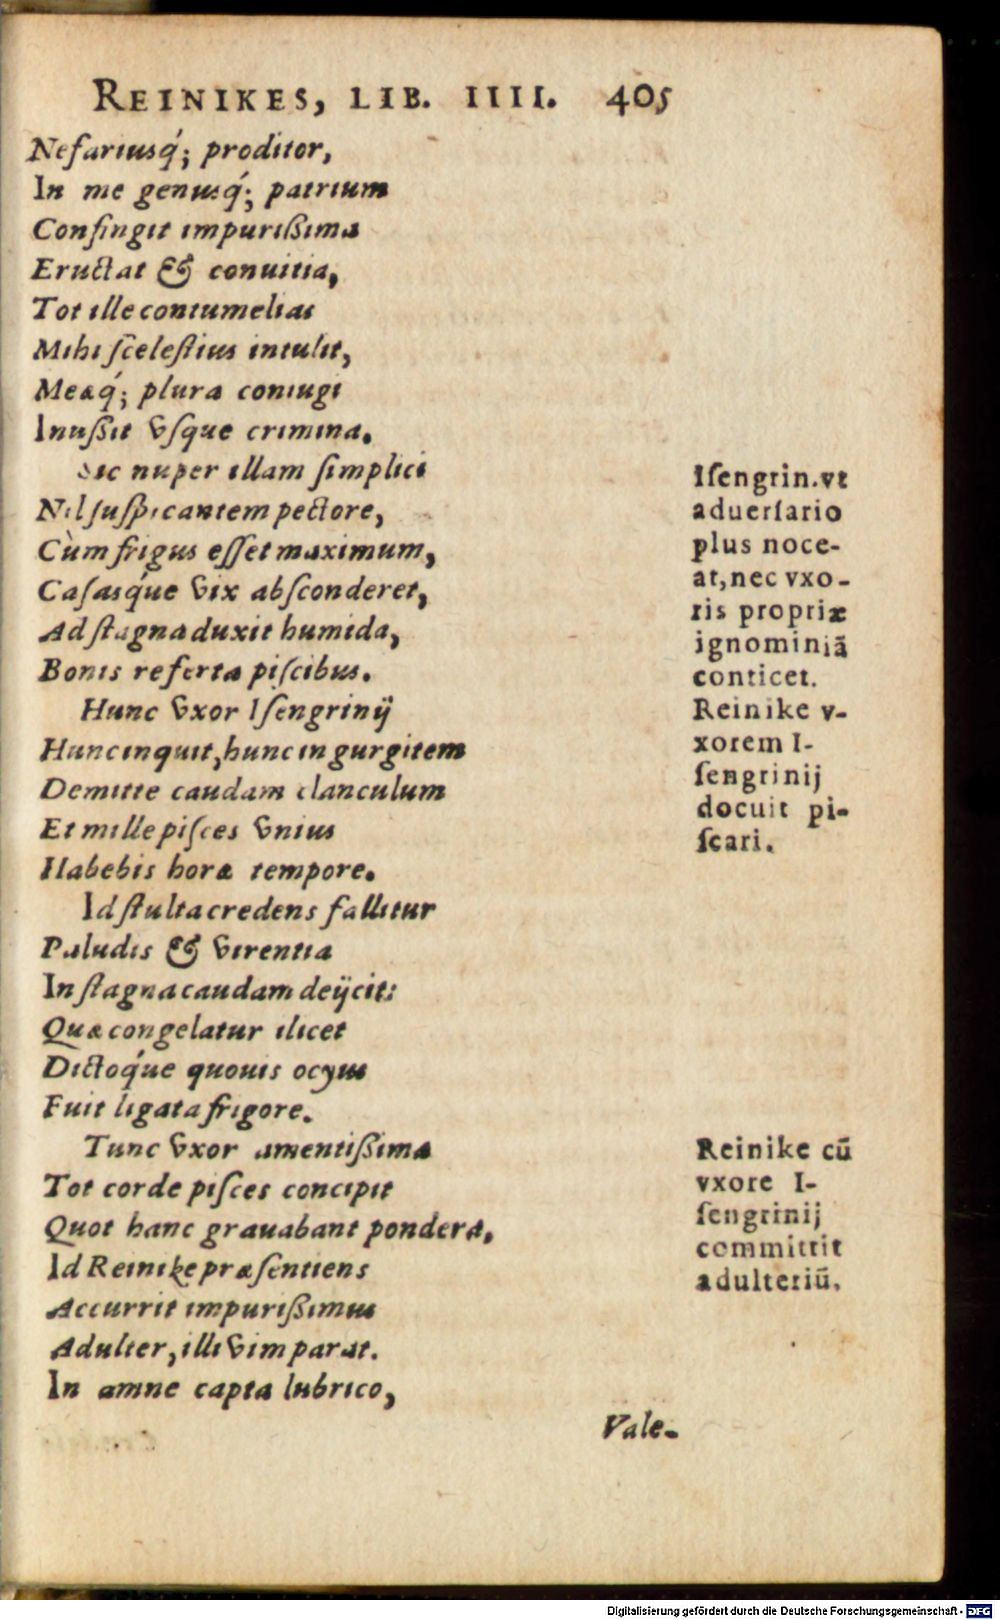 REINIKES, LIB. IIII. 405
Nefariusq́; proditor,
In me genusq́; patrium
Confingit impurißima
Eructat & conuitia,
Tot ille contumelias
Mihi ſceleſtius intulit,
Meæq́; plura coniugi
Inußit vſque crimina.
Sic nuper illam ſimplici
Nil ſuſpicantem pectore,
Cùm frigus eſſet maximum,
Caſasq́ue vix abſconderet,
Ad ſtagna duxit humida,
Bonis referta piſcibus.
Hunc vxor Iſengrinij
Hunc inquit, hunc in gurgitem
Demitte caudam clanculum
Et mille piſces vnius
Habebis horæ tempore.
Id ſtulta credens fallitur
Paludis & virentia
In ſtagna caudam deijcit:
Quæ congelatur ilicet
Dictoq́ue quouis ocyus
Fuit ligata frigore.
Tunc vxor amentißima
Tot corde piſces concipit
Quot hanc grauabant pondera,
Id Reinike præſentiens
Accurrit impurißimus
Adulter, illi vim parat.
In amne capta lubrico,
Vale-
Iſengrin. vt
aduerſario
plus noce-
at, nec vxo-
ris propriæ
ignominiã
conticet.
Reinike v-
xorem I-
ſengrinij
docuit pi-
ſcari.
Reinike cũ
vxore I-
ſengrinij
committit
adulteriũ.
Digitalisierung gefördert durch die Deutsche Forschungsgemeinschaft - DFG